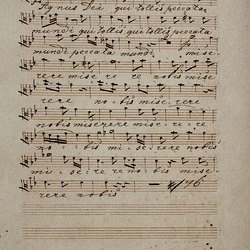 Agnus Dei qui tollis peccata
mundi qui tollis peccata
mundi peccata mundi mise
rere mise re re nobis mise
rere no bis mise rere
nobis miserere mise re re
no bis mi se rere nobis
mi se re re no bis mise
rere nobis